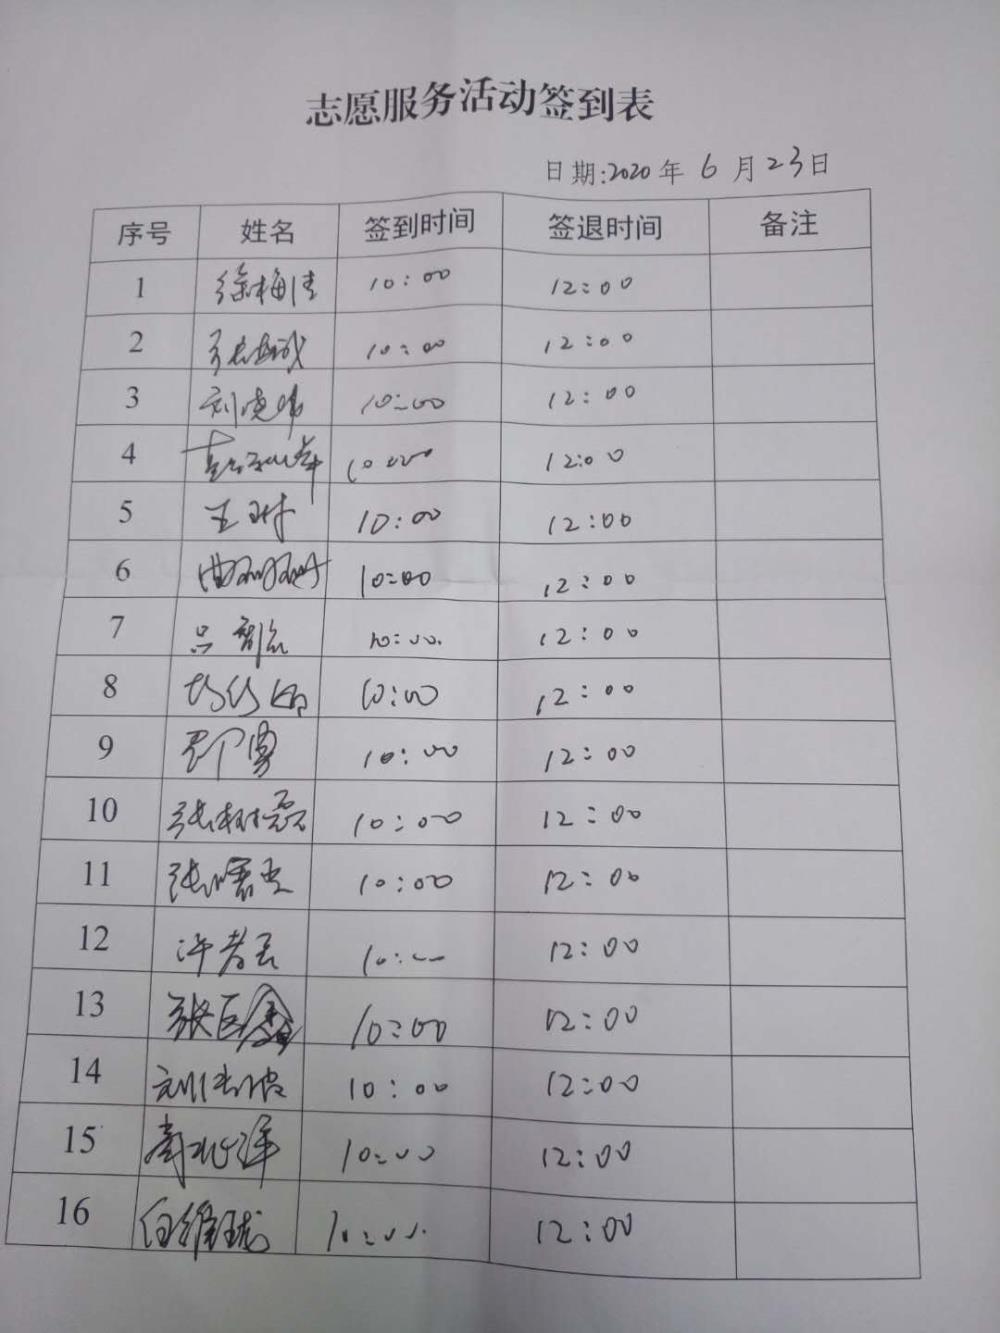 志愿服务活动签到表
日期:2020年 6 月 23日
序号 姓名 签到时间 签退时间 备注
1 徐梅倩 10:00 12:00
2 10:00 12:00
3 刘晓伟 10:00 12:00
4 10:00 12:00
5 王琳 10:00 12:00
6 曲珊珊 10:00 12:00
7 吕 10:00 12:00
8 10:00 12:00
9 勇 10:00 12:00
10 张树磊 10:00 12:00
11 张曙光 10:00 12:00
12 许孝云 10:00 12:00
13 张巨鑫 10:00 12:00
14 刘 10:00 12:00
15 10:00 12:00
16 白维珑 10:00 12:00